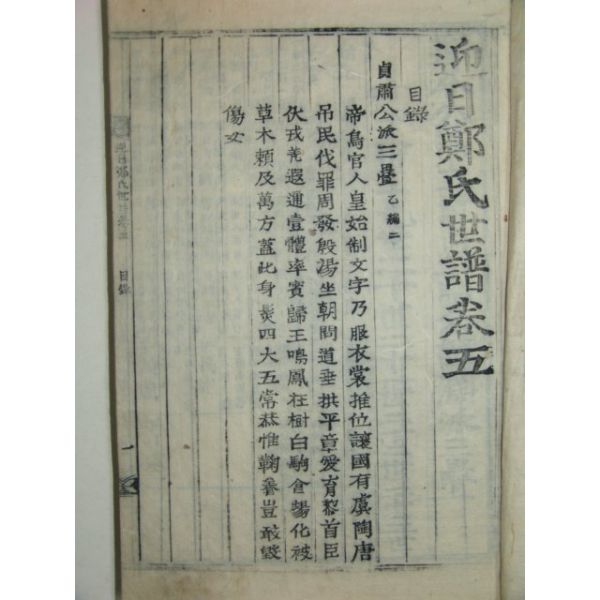 迎日鄭氏世譜卷五
目錄
貞肅公派三疊 乙編二
帝鳥官人皇始制文字乃服衣裳推位讓國有虞陶唐
吊民伐罪周發殷湯坐朝問道垂拱平章愛育黎首臣
伏戎羌遐邇壹體率賓歸王鳴鳳在樹白駒食場化被
草木賴及萬方蓋此身髮四大五常恭惟鞠養豈敢毀
傷女
迎日鄭氏世譜卷五
目錄
一